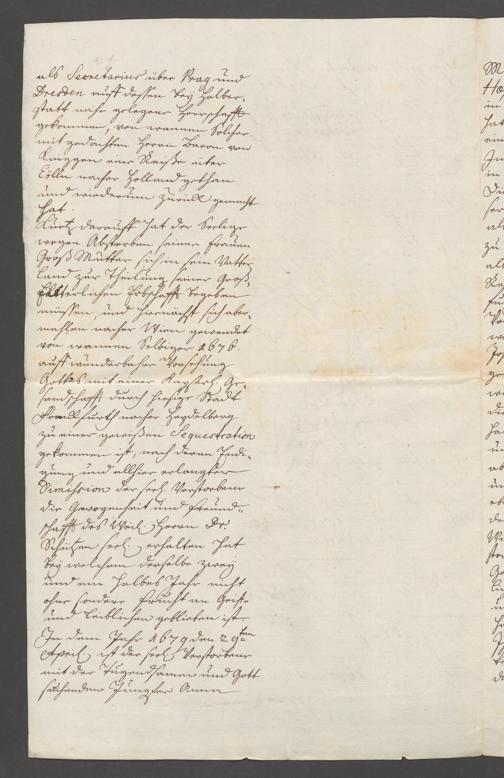 als Secretarius über Prag und
Dresden auff dessen bey Halber-
statt nahe gelegene Herrschafft
gekommen, von wannen Selbiger
mit gedachten Herrn Baron von
Knyggen eine Reiße über
Cölln nacher Holland gethan
und wiederum zurück gemacht
hat.
Kurtz darauff hat der Seelige
wegen Absterben seiner Frauen
Groß Mutter sich in sein Vatter
land zur Theilung seiner Groß-
Erbschafft begeben
müssen, und hernach sich aber-
mahlen nacher Wien gewendet
von wannen Selbiger 1676
auß wunderbahrer Vorsehung
Gottes mit einer Kayserl. Ge-
sandschafft durch hiesige Stadt
Franckfurth nacher Heydelberg
zu einer gewißen Sequestration
gekommen ist, nach deren Endi-
gung und allhier erlangter
Dimission der seel. Verstorbene
die Gewogenheit und Freund-
schafft des Weil. Herrn Dr.
Schützen seel. erhalten hat
bey welchem derselbe zwey
und ein halbes Jahr nicht
ohne sondere Frucht an Geist-
und Leiblichen geblieben ist
In dem Jahr 1679 den 29ten
April ist der seel. Verstorbene
mit der Tugendsamen und Gott
suchenden Jungfer Anna